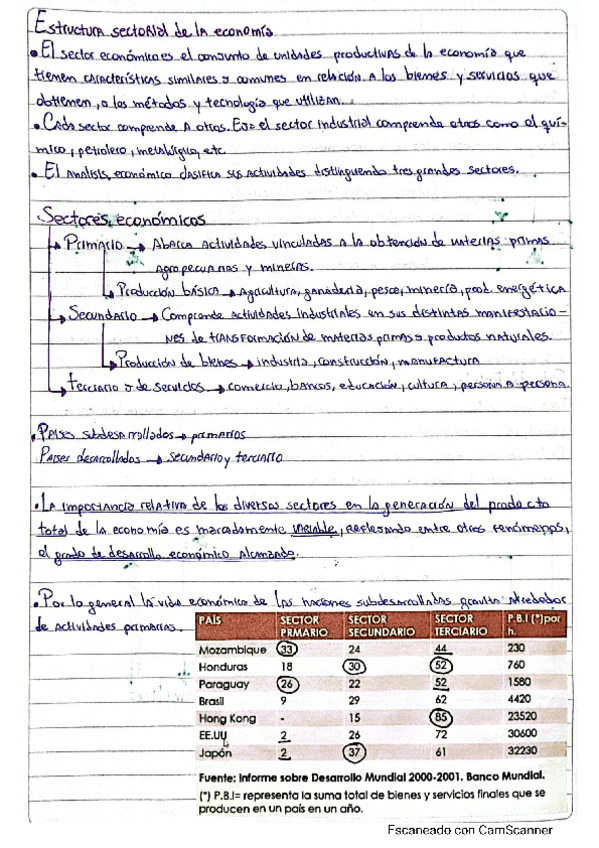 Estructura sectorial de la economía
• El sector económico es el conjunto de unidades productivas de la economía que
tienen características similares o comunes en relación a los bienes y servicios que
obtienen, o los métodos y tecnología que utilizan.
• Cada sector comprende a otros. Ej: el sector industrial comprende otros como el quí-
mico, petrolero, metalúrgico, etc
• El análisis económico clasifica sus actividades distinguendo tres grandes sectores.
Sectores económicos
→ Primario → Abarca actividades vinculadas a la obtención de materias primas
agropecuarias y mineras.
→ Producción básica → Agricultura, ganadería, pesca, minería, prod. energética
→ Secundario → Comprende actividades industriales en sus distintas manifestacio-
nes de transformación de materias primas o productos naturales.
→ Producción de bienes → industria, construcción, manufactura
→ Terciario o de servicios → comercio, bancos, educación, cultura, persona a persona.
• Países subdesarrollados → primarios
Países desarrollados → secundario y terciario
• La importancia relativa de los diversos sectores en la generación del producto
total de la economía es marcadamente variable, reflejando entre otros fenómenos,
el grado de desarrollo económico alcanzado.
• Por lo general la vida económica de las naciones subdesarrolladas gravita alrededor
de actividades primarias.
PAÍS SECTOR PRMARIO SECTOR SECUNDARIO SECTOR TERCIARIO P.B.I (*) por h.
Mozambique 33 24 44 230
Honduras 18 30 52 760
Paraguay 26 22 52 1580
Brasil 9 29 62 4420
Hong Kong - 15 85 23520
EE.UU 2 26 72 30600
Japón 2 37 61 32230
Fuente: Informe sobre Desarrollo Mundial 2000-2001. Banco Mundial.
(*) P.B.I= representa la suma total de bienes y servicios finales que se
producen en un país en un año.
Escaneado con CamScanner